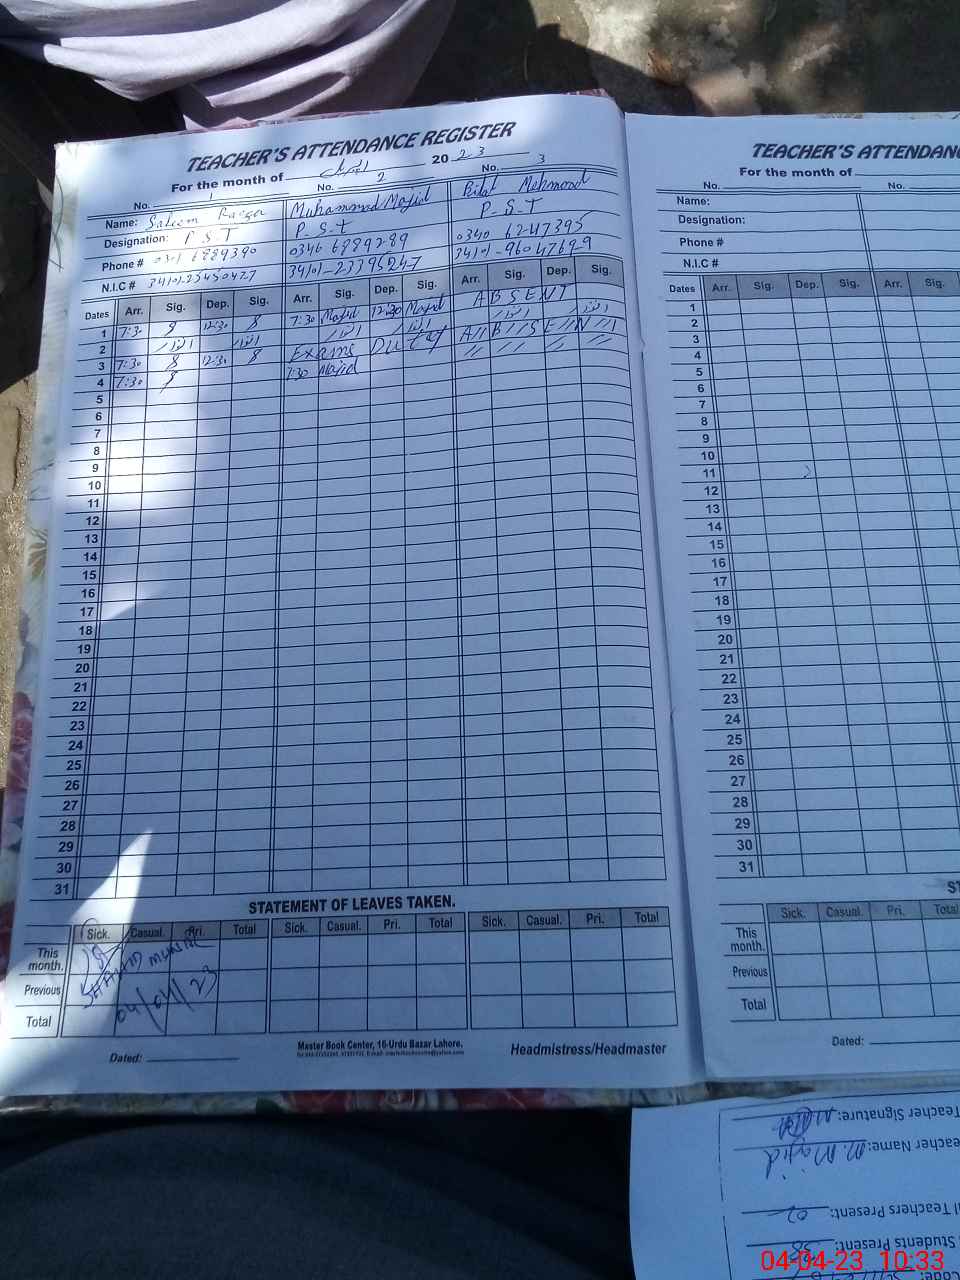 TEACHER'S ATTENDANCE REGISTER
For the month of اپریل 2023
No. 1 No. 2 No. 3
Name: Saleem Muhammad Majid Bilal Mehmood
Designation: P.S.T P.S.T P.S.T
Phone # 0346 6889289 0340 6247395
N.I.C # 34101-2339624-7 34101-9604769-9
Dates Arr. Sig. Dep. Sig. Arr. Sig. Dep. Sig. Arr. Sig. Dep. Sig.
1 7:30 12:30 7:30 Majid 12:30 Majid ABSENT
2 اتوار اتوار اتوار اتوار اتوار اتوار
3 7:30 12:30 Exams Duty ABSENT
4 7:30 7:30 Majid // // // //
5
6
7
8
9
10
11
12
13
14
15
16
17
18
19
20
21
22
23
24
25
26
27
28
29
30
31
STATEMENT OF LEAVES TAKEN.
Sick. Casual. Pri. Total Sick. Casual. Pri. Total Sick. Casual. Pri. Total
This month.
Previous
Total
SHAHID MUNIR
04/04/23
Dated:
Master Book Center, 16-Urdu Bazar Lahore.
Headmistress/Headmaster
TEACHER'S ATTENDAN
For the month of
No. No.
Name:
Designation:
Phone #
N.I.C #
Dates Arr. Sig. Dep. Sig. Arr. Sig.
1
2
3
4
5
6
7
8
9
10
11
12
13
14
15
16
17
18
19
20
21
22
23
24
25
26
27
28
29
30
31
ST
Sick. Casual. Pri. Total
This month.
Previous
Total
Dated:
eacher Signature:
eacher Name: M. Majid
l Teachers Present: 02
Students Present: 38
Code:
04-04-23 10:33